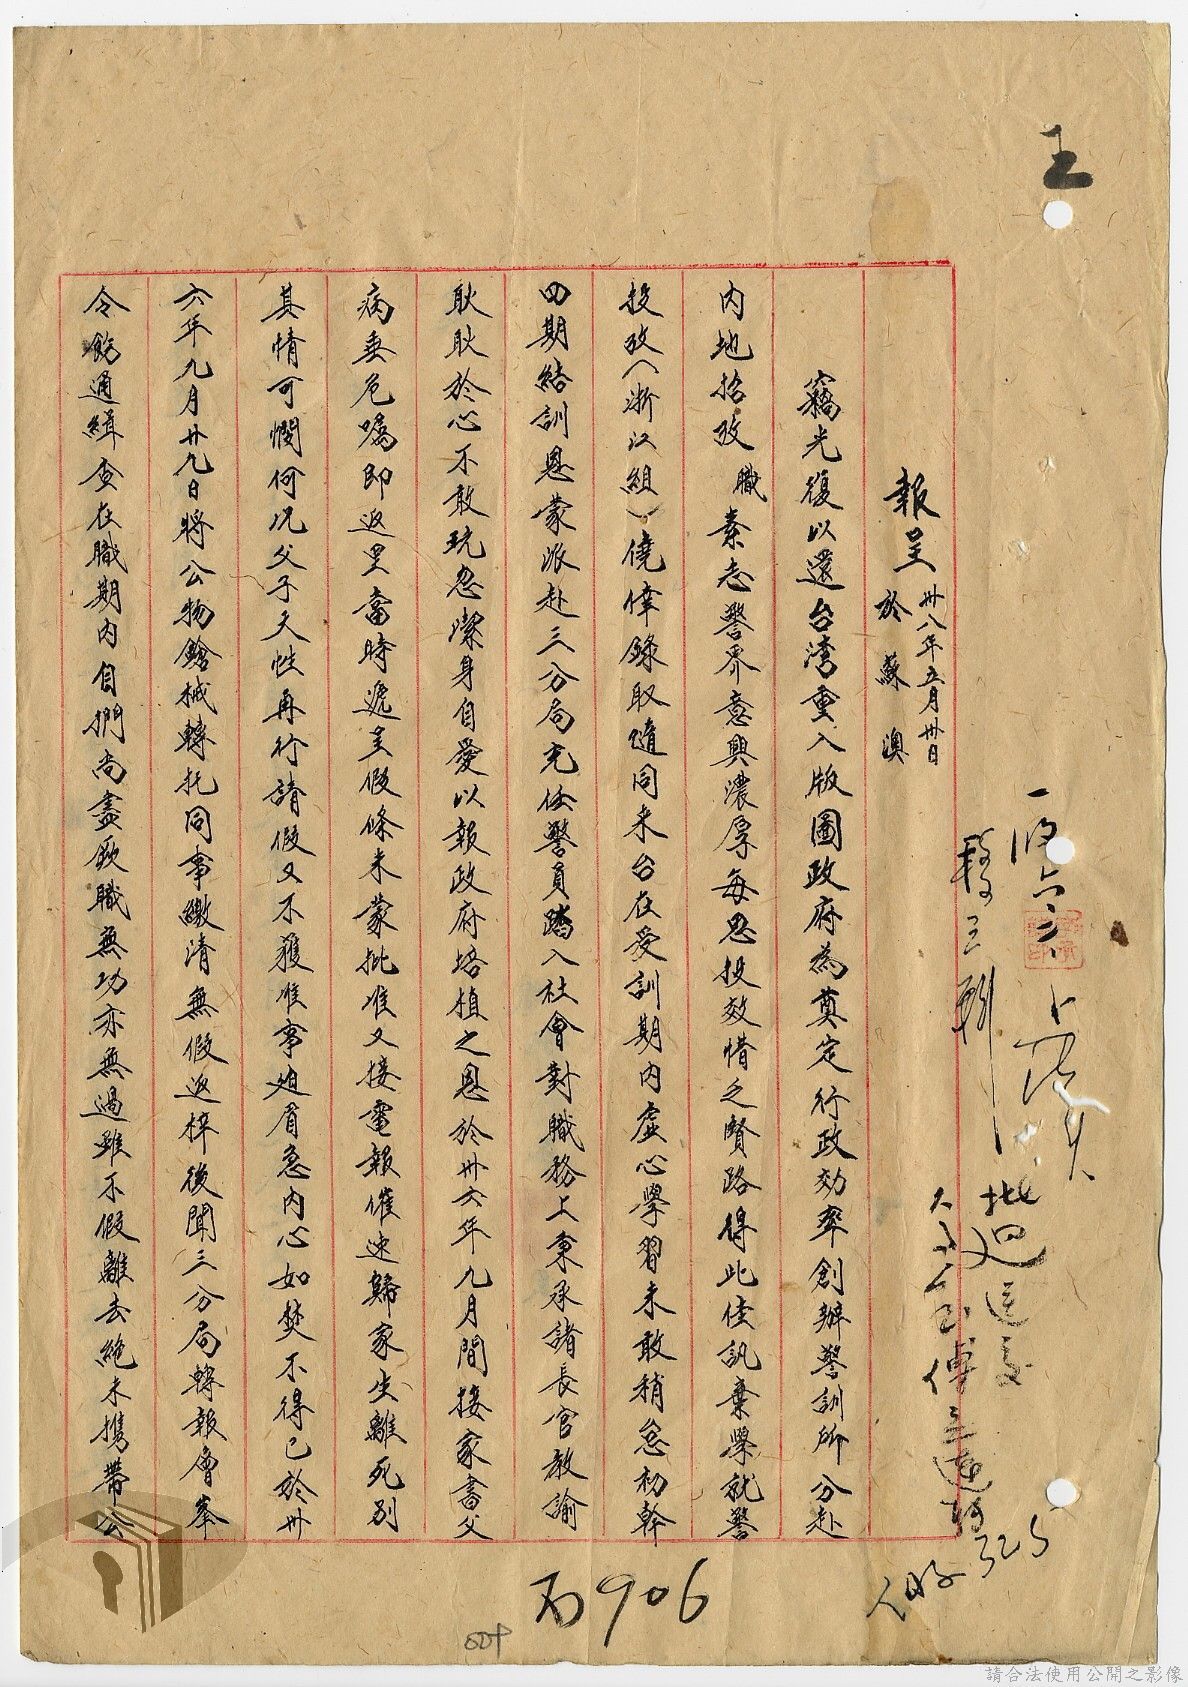 王
報呈 卅八年五月卅日
於蘇澳
竊光復以還台灣重入版圖政府為奠定行政効率創辦警訓所分赴
內地招攷職素志警界意興濃厚每思投效惜乏賢路得此佳訊棄學就警
投攷(浙江組)僥倖錄取隨同來台在受訓期內虛心學習未敢稍怠初幹
四期結訓恩蒙派赴三分局充任警員踏入社會對職務上秉承諸長官教諭
耿耿於心不敢玩忽潔身自愛以報政府培植之恩於卅六年九月間接家書父
病垂危囑即返里當時遞呈假條未蒙批准又接電報催速歸家生離死別
其情可憫何況父子天性再行請假又不獲准事迫眉急內心如焚不得已於卅
六年九月廿九日將公物鎗械轉托同事繳清無假返梓後聞三分局轉報層峯
令飭通緝查在職期內自捫尚盡厥職無功亦無過雖不假離去絕未携帶公
批迴
325
906
請合法使用公開之影像